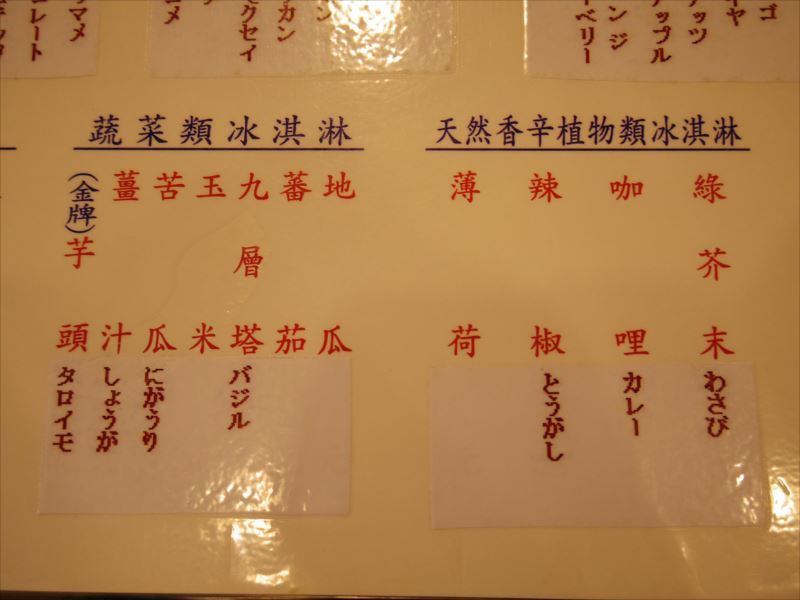 ゴ
ヤ
ッツ
ップル
ンジ
ベリー
ン
カン
クセイ
コメ
マメ
レート
天然香辛植物類冰淇淋
綠芥末
わさび
咖哩
カレー
辣椒
とうがし
薄荷
蔬菜類冰淇淋
地瓜
蕃茄
九層塔
バジル
玉米
苦瓜
にがうり
薑汁
しょうが
(金牌)芋頭
タロイモ